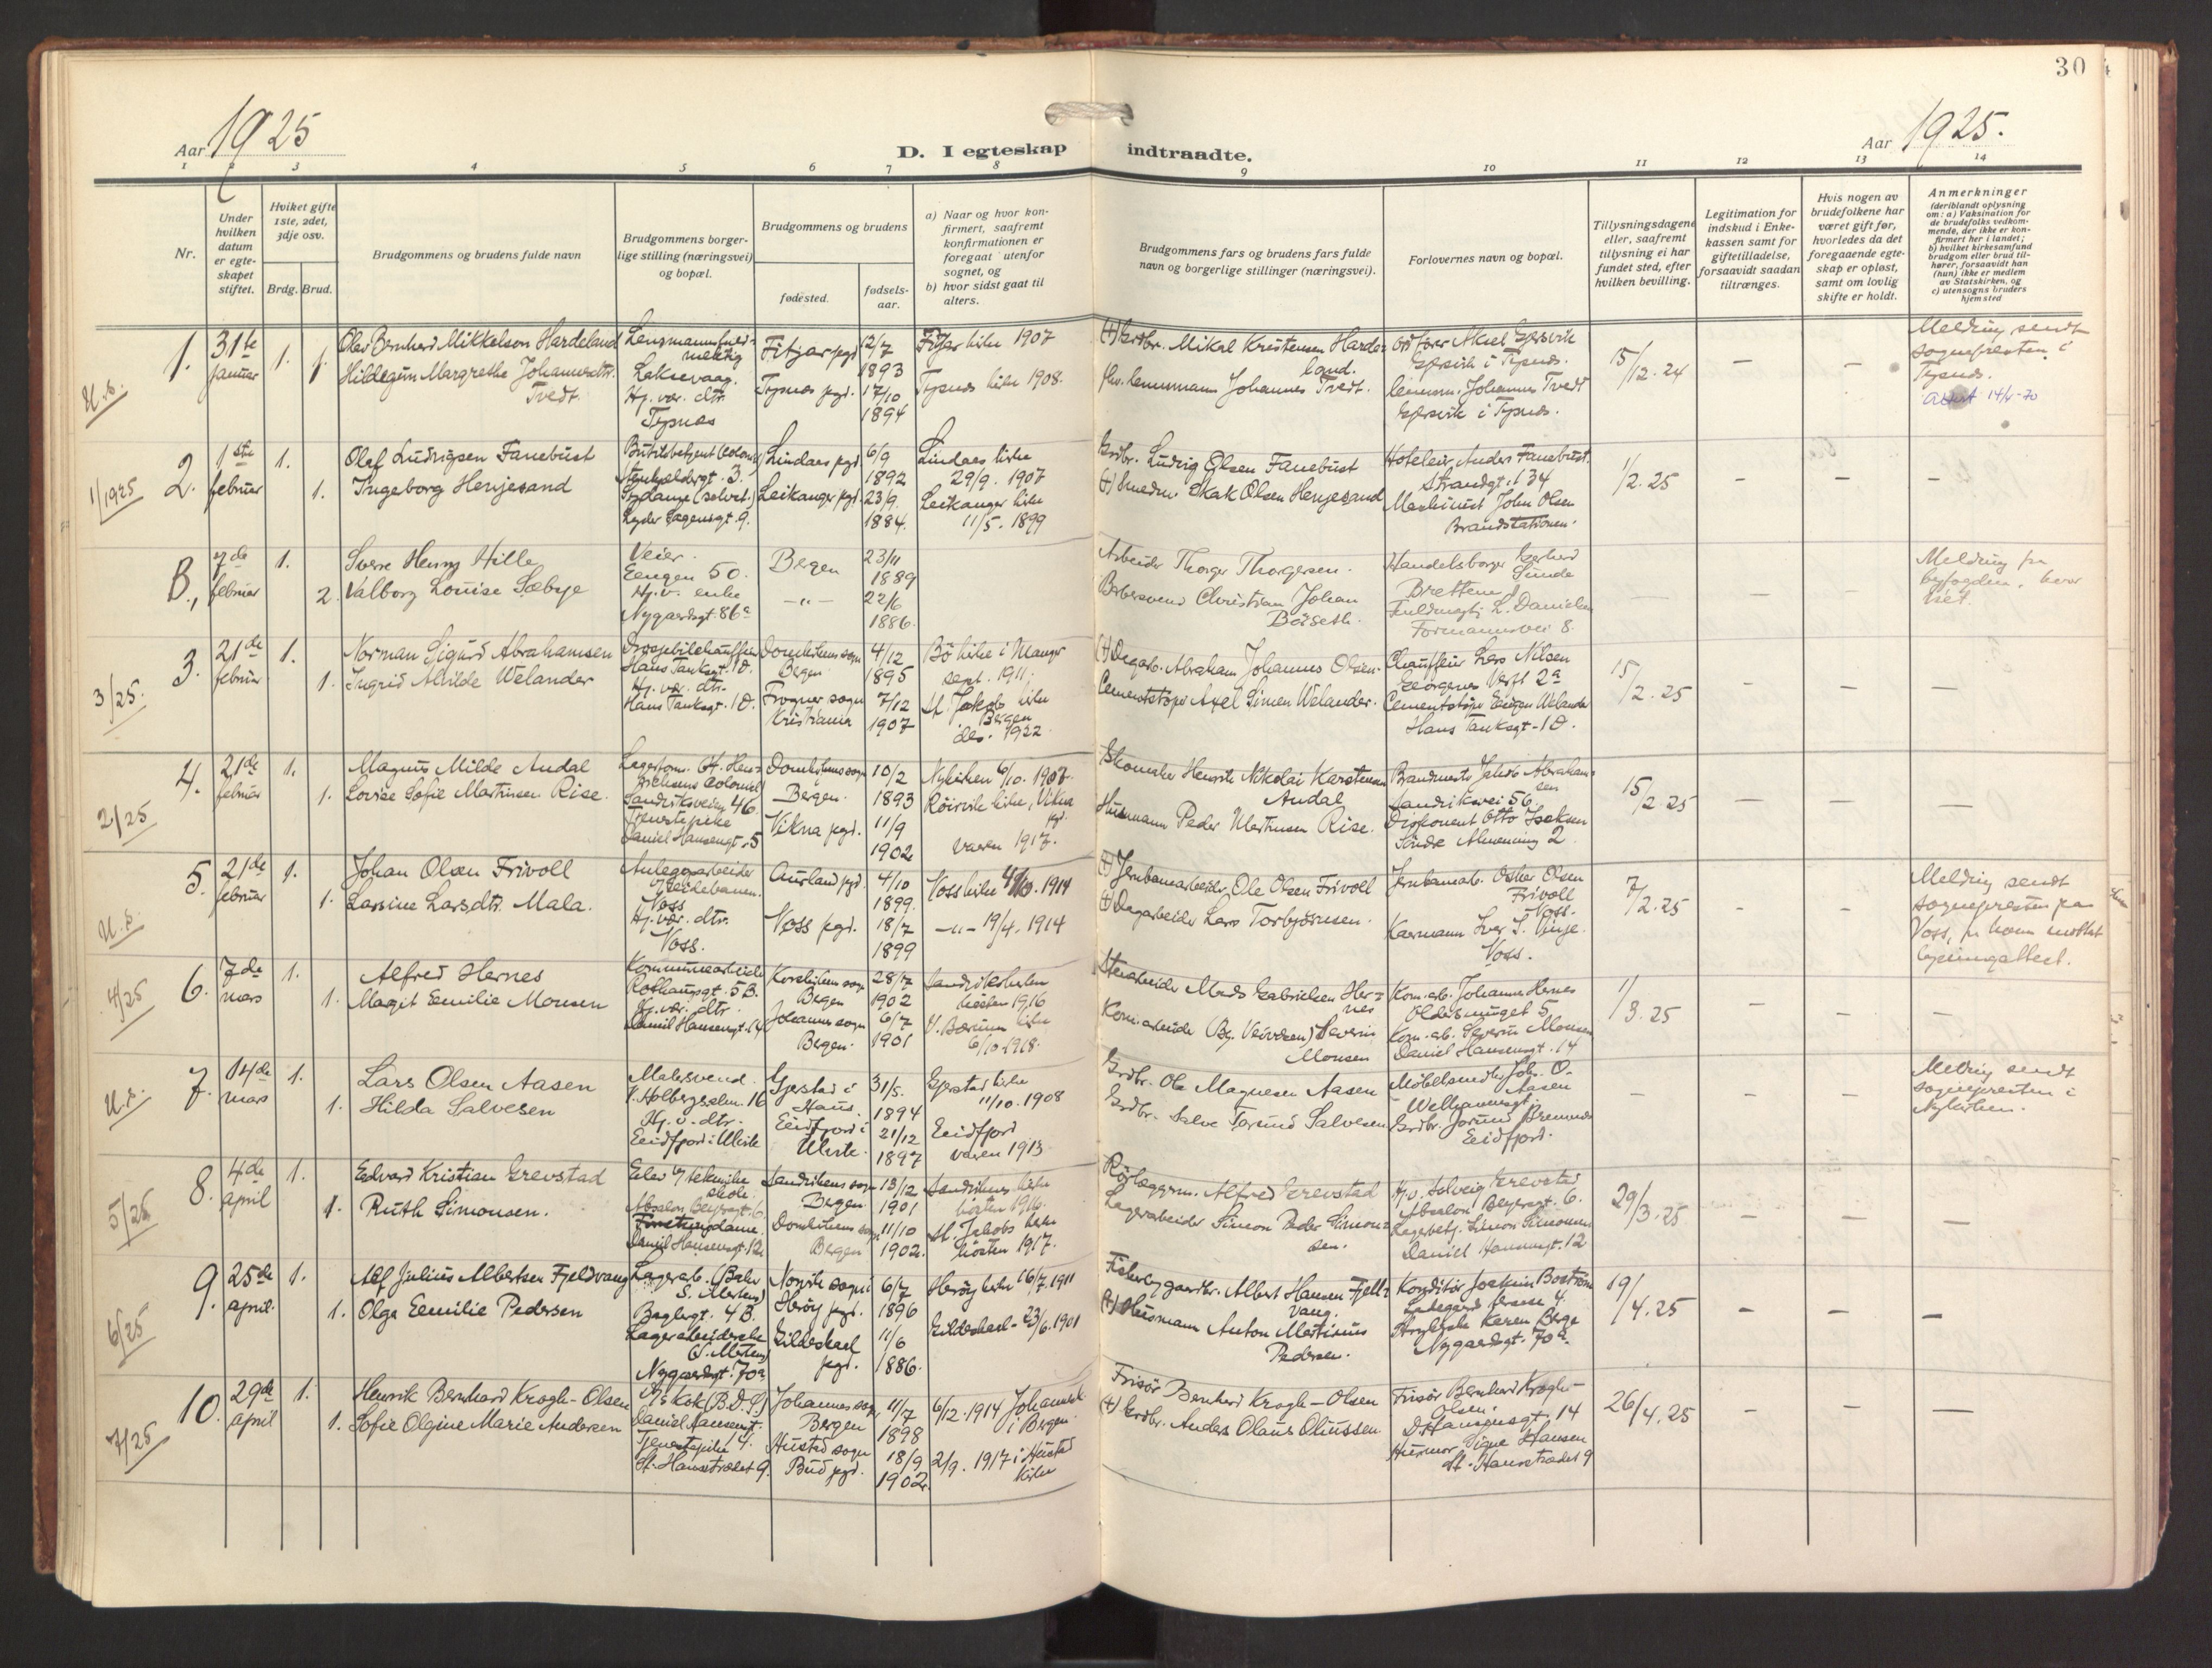 30
Aar 1925
D. I egteskap indtraadte.
Aar 1925.
1 2 3 4 5 6 7 8 9 10 11 12 13 14
Nr.
Under hvilken datum er egteskapet stiftet.
Hvilket gifte 1ste, 2det, 3dje osv.
Brdg. Brud.
Brudgommens og brudens fulde navn
Brudgommens borgerlige stilling (næringsvei) og bopæl.
Brudgommens og brudens
fødested.
fødselsaar.
a) Naar og hvor konfirmert, saafremt konfirmationen er foregaat utenfor sognet, og
b) hvor sidst gaat til alters.
Brudgommens fars og brudens fars fulde navn og borgerlige stillinger (næringsvei).
Forlovernes navn og bopæl.
Tillysningsdagene eller, saafremt tillysning ei har fundet sted, efter hvilken bevilling.
Legitimation for indskud i Enkekassen samt for giftetilladelse, forsaavidt saadan tiltrænges.
Hvis nogen av brudefolkene har været gift før, hvorledes da det foregaaende egteskap er opløst, samt om lovlig skifte er holdt.
Anmerkninger
(deriblandt oplysning om: a) Vaksination for de brudefolks vedkommende, der ikke er konfirmert her i landet; b) hvilket kirkesamfund brudgom eller brud tilhører, forsaavidt han (hun) ikke er medlem av Statskirken, og c) utensogns bruders hjemsted
1. 31te januar 1. 1.
Olav Bernhard Mikkelson Hardeland
Hildegun Margrethe Johannesdtr. Tvedt
Laksevaag.
Hj. vær. dtr.
Tysnæs
Fitjar pgd. 12/7 1893
Tysnæs pgd. 17/10 1894
Fitjar kirke 1907
Tysnæs kirke 1908.
(+) Grdbr. Mikal Kristensen Hardeland.
fhv. lensmann Johannes Tvedt.
Ordfører Aksel Gjersvik
Gjersvik i Tysnes.
lensm. Johannes Tvedt
Gjersvik i Tysnes.
15/12. 24
Melding sendt sognepresten i Tysnes.
1/1925
2. 1ste februar 1. 1.
Olaf Ludvigsen Fanebust
Ingeborg Henjesand
Lindaas pgd. 6/9 1892
Leikanger pgd. 23/9. 1884.
Lindaas kirke 29/9. 1907
Leikanger kirke 11/5. 1899
Grdbr. Ludvig Olsen Fanebust
(+) Smedm. Skak Olsen Henjesand
Hoteleier Anders Fanebust.
Strandgt. 134
Maskinist John Olsen
Brandstationen.
1/2. 25
B., 7de februar 1. 2.
Sverre Henry Hille
Valborg Louise Sæbye
Veier.
Engen 50.
Hj. v. enke
Nygaardsgt. 86a
Bergen 23/11 1889
—„— 22/6 1886.
Arbeider Thorger Thorgersen.
Christian Johan Börseth.
Handelsborger Gerhard Sunde
L. Danielsen
Formannsvei 8.
Melding fra byfogden, hvor viet.
3/25.
3. 21de februar 1. 1.
Norman Sigurd Abrahamsen
Ingrid Alvilde Welander
Hans Tanksgt. 10.
Hj. vær. dtr.
Hans Tanksgt. 10.
Domkirkens sogn Bergen 4/12 1895
Frogner sogn Kristiania 7/12 1907
Bö kirke i Manger sept. 1911.
St. Jakobs kirke Bergen des. 1922
(+) Dagarb. Abraham Johannes Olsen.
Cementstöper Axel Simen Welander.
Chauffeur Lars Nilsen
Georgenes Verft 2a
Hans Tanksgt. 10.
15/2. 25
2/25
4. 21de februar 1. 1.
Magnus Milde Andal
Lovise Sofie Martinsen Rise.
Sandviksveien 46.
Tjenestepike
Daniel Hansensgt. 5
Domkirkens sogn Bergen. 10/2 1893
Vikna pgd. 11/9 1902
Nykirken 6/10. 1907.
Röirvik kirke, Vikna pgd. vaaren 1917.
Skomaker Henrik Nikolai Karstensen Andal
Husmann Peder Martinsen Rise.
Brandmester Jakob Abrahamsen
Sandviksvei 56.
Disponent Otto Isaksen
Söndre Almenning 2
15/2 25
5. 21de februar 1. 1.
Johan Olsen Frivoll
Larsine Larsdtr. Mala.
Anleggsarbeider
Voss
Hj. vær. dtr.
Voss.
Aurland pgd. 4/10 1899.
Voss pgd. 18/7 1899
Voss kirke 1914
—„— 19/4. 1914
(+) Jernbanearbeider Ole Olsen Frivoll
(+) Dagarbeider Lars Torbjörnsen.
Jernbanearb. Oskar Olsen Frivoll
Voss.
Kaarmann Iver S. Vinje.
Voss.
7/2. 25
Melding sendt sognepresten paa Voss, fra ham mottat
4/25
6. 7de mars 1. 1.
Alfred Hernes
Magnit Emilie Monsen
Kommunearbeider
Rothaugsgt. 5B.
Hj. vær. dtr.
Daniel Hansensgt. 14
Korskirkens sogn Bergen 28/7 1902
Johannes sogn Bergen. 6/7 1901
Sandvikskirken hösten 1916
V. Bærum kirke 6/10 1918.
Stenarbeider Mads Gabrielsen Hernes
Severin Monsen
Kom. arb. Johannes Hernes
Oldesmuget 5
Kom. arb. Severin Monsen
Daniel Hansensgt. 14
1/3. 25
7. 14de mars 1. 1.
Lars Olsen Aasen
Hilda Salvesen
Malersvend
Hj. v. dtr.
Eidfjord i Ulvik
Gjerstad i Haus. 31/5. 1894
Eidfjord i Ulvik. 21/12 1897
Gjerstad kirke 11/10. 1908
Eidfjord vaaren 1913.
Grdbr. Ola Magnesen Aasen
Grdbr. Salve Torund Salvesen
Joh. O. Aasen
Welhavensgt.
Eidfjord.
Melding sendt sognepresten i Nykirken.
5/25
8. 4de april 1. 1.
Edvard Kristian Grevstad
Ruth Simonsen.
Elev v/ tekniske skole.
Absalon Beyersgt. 6
Daniel Hansensgt. 12
Sandvikens sogn Bergen 13/12 1901
Domkirkens sogn Bergen 11/10 1902.
Sandvikens kirke hösten 1916.
St. Jakobs kirke hösten 1917.
Rörleggerm. Alfred Grevstad
Lagerarbeider Simon Peder Simonsen.
Hj. v. Solveig Grevstad
Absalon Beyersgt. 6.
Lagerarb. Simon Simonsen
Daniel Hansensgt. 12
29/3. 25
6/25
9. 25de april. 1. 1.
Alf Julius Albertsen Fjeldvang
Olga Emilie Pedersen
Baglergt. 4B.
Lagerarbeiderske
Nygaardsgt. 70a
Herøy pgd. 6/7 1896
Gildeskaal pgd. 11/6 1886.
Herøy kirke 16/7. 1911
Gildeskaal - 23/6. 1901
Albert Hansen Fjeldvang.
(+) Husmann Anton Martinus Pedersen.
Konditor Joakim Boström
Karen Berge
Nygaardsgt. 70a
19/4. 25
7/25
10. 29de april 1. 1.
Henrik Bernhard Krogh-Olsen
Sofie Olgine Marie Andersen
Kok (B.D.S.)
Daniel Hansensgt. 14.
Tjenestepike
St. Hansstrædet 9.
Johannes sogn Bergen 11/7 1898
Hustad sogn Bud pgd. 18/9 1902.
6/12. 1914 Johannesk. i Bergen
2/9. 1917 i Hustad kirke
Frisör Bernhard Krogh-Olsen
(+) Grdbr. Anders Olaus Olaussen
Frisör Bernhard Krogh-Olsen.
D. Hansensgt. 14
Signe Hansen
St. Hansstrædet 9
26/4. 25